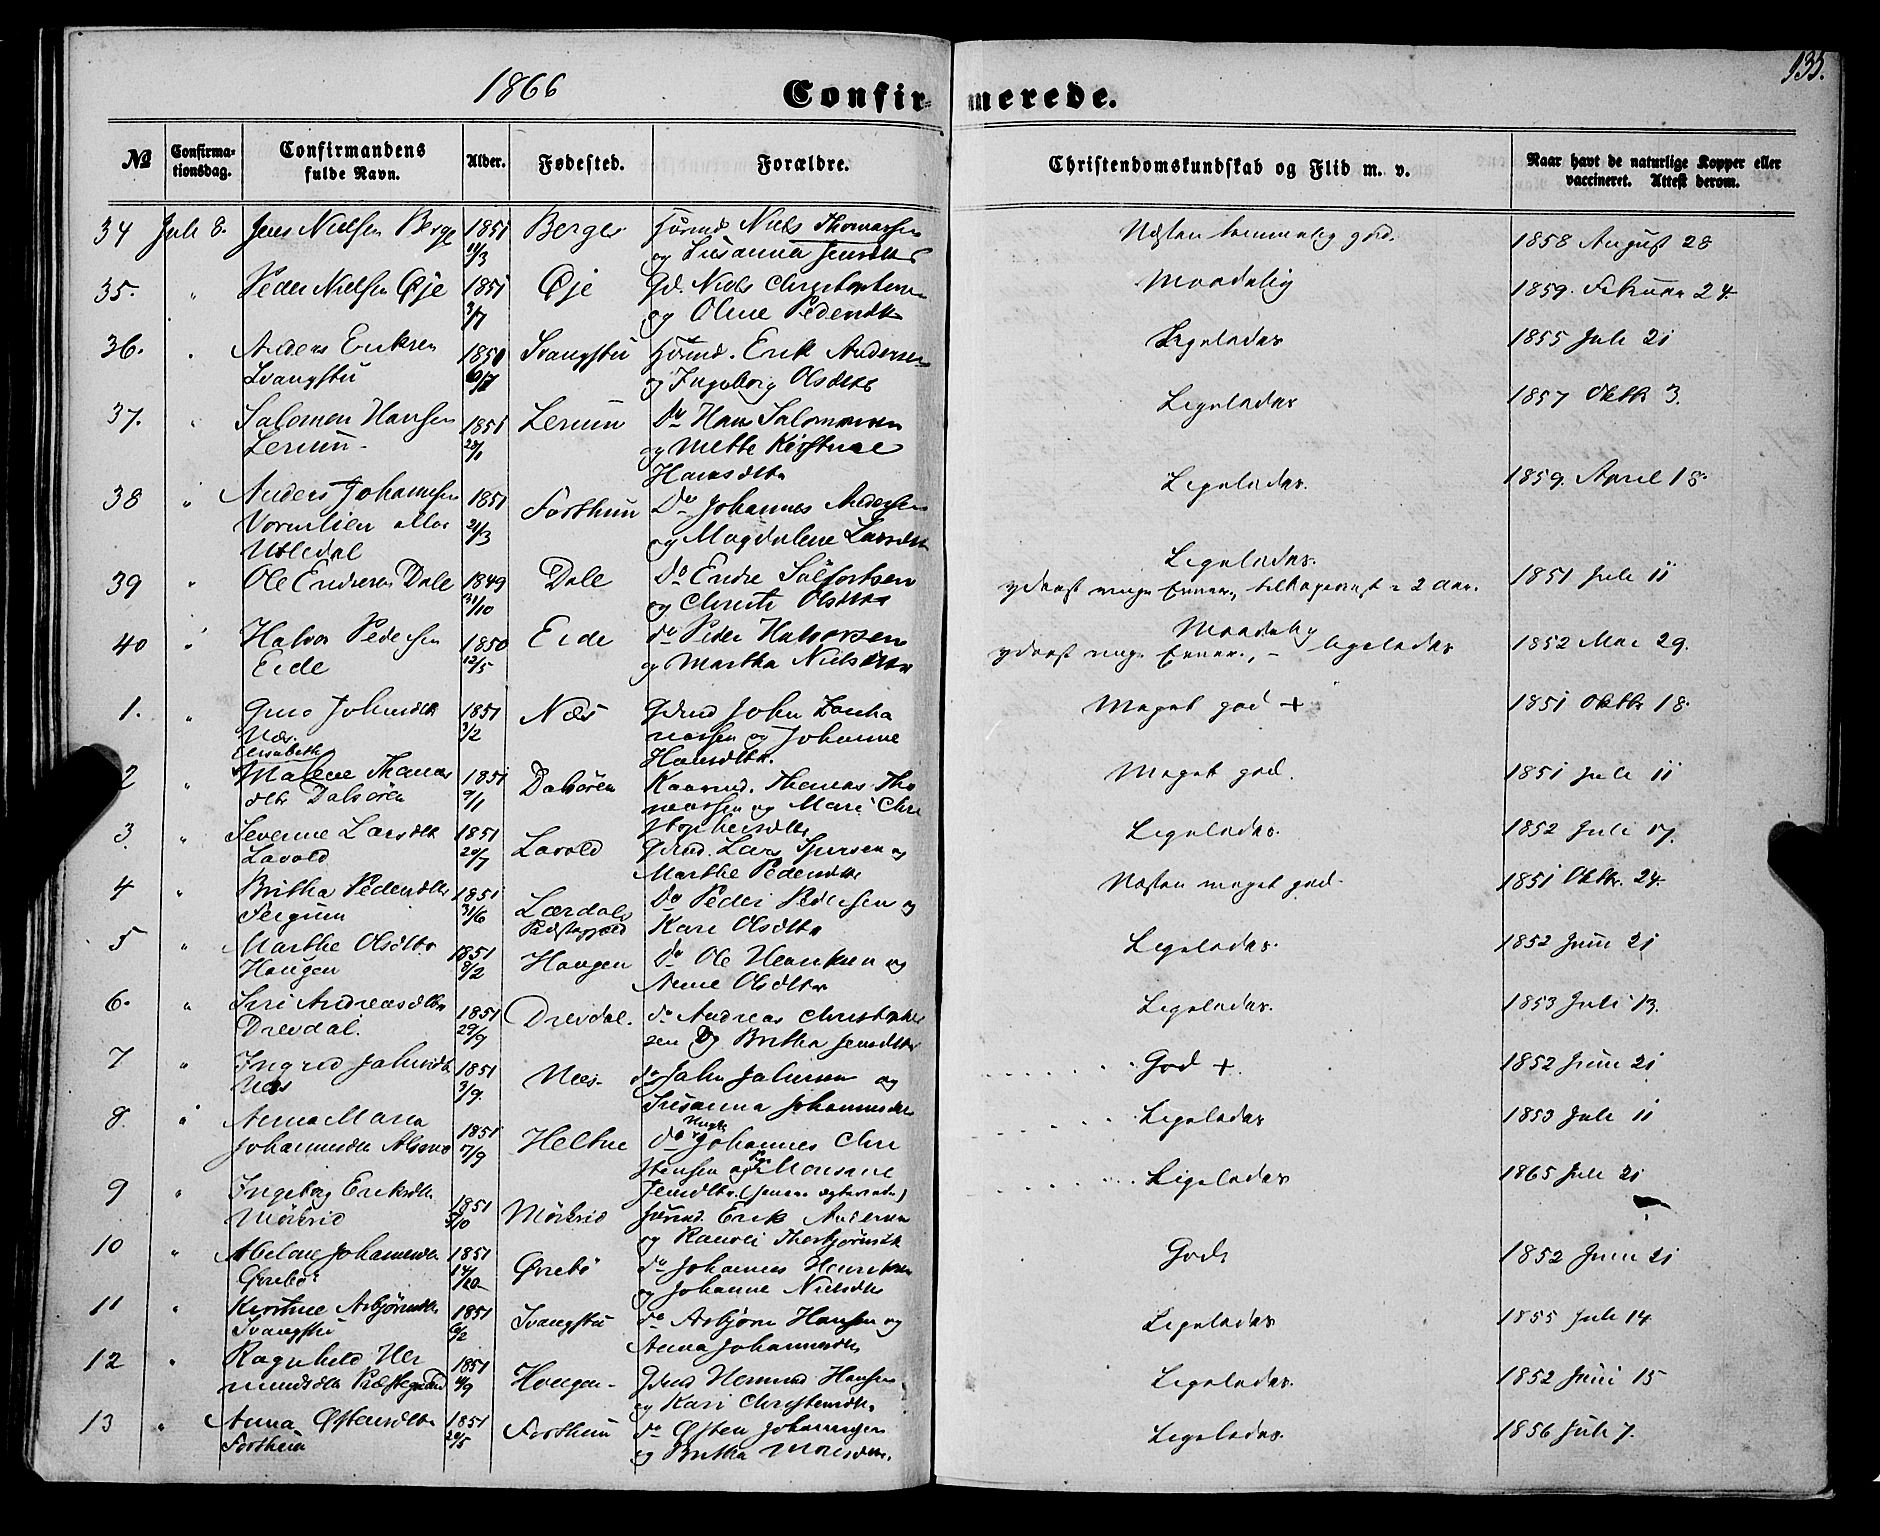 1866
Confirmerede.
135.
№ Confirmationsdag. Confirmandens fulde Navn. Alder. Fødested. Forældre. Christendomskundskab og Flid m. v. Naar havt de naturlige Kopper eller vaccineret. Attest derom.
34 Juli 8. Jens Nielsen Berge 1851 11/3 Berge Huusmd Niels Thomassen Næsten temmelig god. 1858 August 28
og Susanna Jensdtr
35. " Peder Nielsen Øje 1851 3/7 Øje Gd. Niels Christophersen Maadelig 1859. Februar 24.
og Oline Pedersdtr
36. " Anders Eriksen 1850 Svangstu Huusmd. Erik Andersen Ligeledes 1855 Juli 21
Svangstu og Ingeborg Olsdtr
37. " Salomon Hansen 1851 28/1 Lerum do Hans Salomonsen Ligeledes 1857 Oktb 3.
Lerum og Mette Kirstine
Hansdtr
38 " Anders Johannesen 1851 21/3 Forthun Do Johannes Andersen Ligeledes. 1859. April 18.
Vormelien eller og Magdalene Larsdtr
Utledal
39 " Ole Endresen Dale 1849 31/10 Dale Do Endre Sjulfortsen Ligeledes. 1851 Juli 11
og Christi Olsdtr yderst ringe Evner, tilbageviist i 2 Aar.
40 " Halvor Pedersen 1850 12/5 Eide do Peder Halvorsen Maadelig 1852 Mai 29.
Eide og Martha Nielsdtr yderst ringe Evner., – ligeledes
1. " Johnsdtr 1851 3/2 Næs Gdmd John Zacha Meget god + 1851 Oktbr 18.
Næs. riassen og Johanne
Hansdtr.
2 " Elisabeth
Malene Thomas 1851 9/1 Dalsøren Kaarmd. Thomas Tho Meget god. 1851 Juli 11
dtr Dalsøren massen og Mari Chri
stophersdtr
3. " Severine Larsdtr 1851 20/7 Lavold Gdmd. Lars Sjursen og Ligeledes. 1852 Juli 17.
Lavold Marthe Pedersdtr
4 " Britha Pedersdtr 1851 31/6 Lærdals Do Peder Pedersen og Næsten meget god. 1851 Oktbr. 24.
Fergum Præstegjeld Kari Olsdtr
5 " Marthe Olsdtr 1851 9/2 Haugen do Ole Henriksen og Ligeledes. 1852 Juni 21
Haugen Anne Olsdtr
6. " Siri Andreasdtr 1851 29/7 Drevdal. do Andreas Christopher Ligeledes. 1853 Juli 13.
Drevdal. sen Og Britha Jensdtr
7 " Ingrid Johnsdtr 1851 3/9. Næs. do John Johnsen og God +. 1852 Juni 21
Næs Susanna Johannesdtr
8. " Anna Maria 1851 17/9 Heltne do Ungk. Johannes Chri Ligeledes 1853 Juli 11
Johannesdtr Alsmo stensen og Pge Monsine
Jensdtr. (senere ægteviede)
9 " Ingeborg Eriksdtr 1851 5/10 Mørkrid Huusmd. Erik Andersen Ligeledes 1865 Juli 21
Mørkrid og Ranvei Thorbjørnsdtr
10 " Abelone Johannesdtr 1851 14/10 Ørrebø do Johannes Henriksen God. 1852 Juni 21
Ørrebø og Johanne Nielsdtr
11 " Kirstine Asbjørnsdtr 1851 6/2 Svangstu do Asbjørn Hansen og Ligeledes 1855 Juli 14
Svangstu Anna Johannesdtr
12 " Ragnhild Her 1851 4/9 Haugen Gdmd Hermund Hansen Ligeledes. 1852 Juni 15
mundsdtr Præstegaard og Kari Christensdtr.
13 " Anna Østensdtr 1851 20/5 Forthun do Østen Johannesen Ligeledes. 1856 Juli 7.
Forthun og Britha Monsdtr.